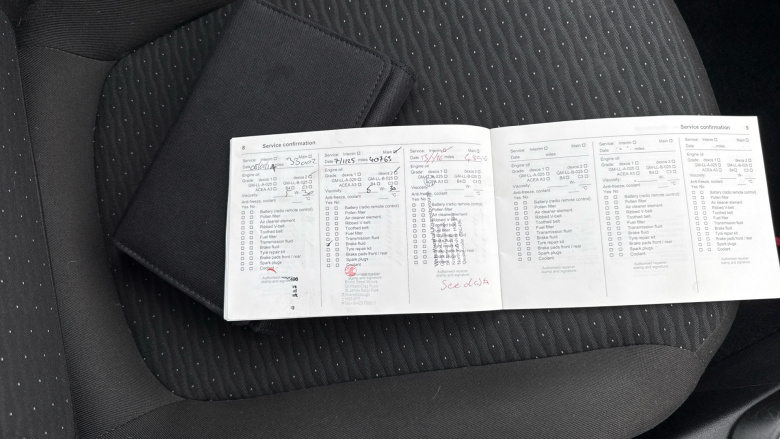 8 Service confirmation
Service: Interim Main
Date miles 33002
Engine oil
Grade dexos 1 dexos 2
GM-LL-A-025 GM-LL-B-025
ACEA A3 B4 C3
Viscosity: W-
Anti-freeze, coolant
Yes No
Battery (radio remote control)
Pollen filter
Air cleaner element
Ribbed V-belt
Toothed belt
Fuel filter
Transmission fluid
Brake fluid
Tyre repair kit
Brake pads front / rear
Spark plugs
Coolant
Authorised repairer
stamp and signature
Service: Interim Main
Date 7/1/25 miles 40765
Engine oil
Grade dexos 1 dexos 2
GM-LL-A-025 GM-LL-B-025
ACEA A3 B4 C3
Viscosity: W-
Anti-freeze, coolant
Yes No
Battery (radio remote control)
Pollen filter
Air cleaner element
Ribbed V-belt
Toothed belt
Fuel filter
Transmission fluid
Brake fluid
Tyre repair kit
Brake pads front / rear
Spark plugs
Coolant
stamp and signature
Service: Interim Main
Date miles
Engine oil
Grade dexos 1 dexos 2
GM-LL-A-025 GM-LL-B-025
ACEA A3 B4 C3
Viscosity: W-
Anti-freeze, coolant
Yes No
Battery (radio remote control)
Pollen filter
Air cleaner element
Ribbed V-belt
Toothed belt
Fuel filter
Transmission fluid
Brake fluid
Tyre repair kit
Brake pads front / rear
Spark plugs
Coolant
Authorised repairer
stamp and signature
Service confirmation 9
Service: Interim Main
Date miles
Engine oil
Grade dexos 1 dexos 2
GM-LL-A-025 GM-LL-B-025
ACEA A3 B4 C3
Viscosity: W-
Anti-freeze, coolant
Yes No
Battery (radio remote control)
Pollen filter
Air cleaner element
Ribbed V-belt
Toothed belt
Fuel filter
Transmission fluid
Brake fluid
Tyre repair kit
Brake pads front / rear
Spark plugs
Coolant
Authorised repairer
stamp and signature
Service: Interim Main
Date miles
Engine oil
Grade dexos 1 dexos 2
GM-LL-A-025 GM-LL-B-025
ACEA A3 B4 C3
Viscosity: W-
Anti-freeze, coolant
Yes No
Battery (radio remote control)
Pollen filter
Air cleaner element
Ribbed V-belt
Toothed belt
Fuel filter
Transmission fluid
Brake fluid
Tyre repair kit
Brake pads front / rear
Spark plugs
Coolant
Authorised repairer
stamp and signature
Service: Interim Main
Date miles
Engine oil
Grade dexos 1 dexos 2
GM-LL-A-025 GM-LL-B-025
ACEA A3 B4 C3
Viscosity: W-
Anti-freeze, coolant
Yes No
Battery (radio remote control)
Pollen filter
Air cleaner element
Ribbed V-belt
Toothed belt
Fuel filter
Transmission fluid
Brake fluid
Tyre repair kit
Brake pads front / rear
Spark plugs
Coolant
Authorised repairer
stamp and signature